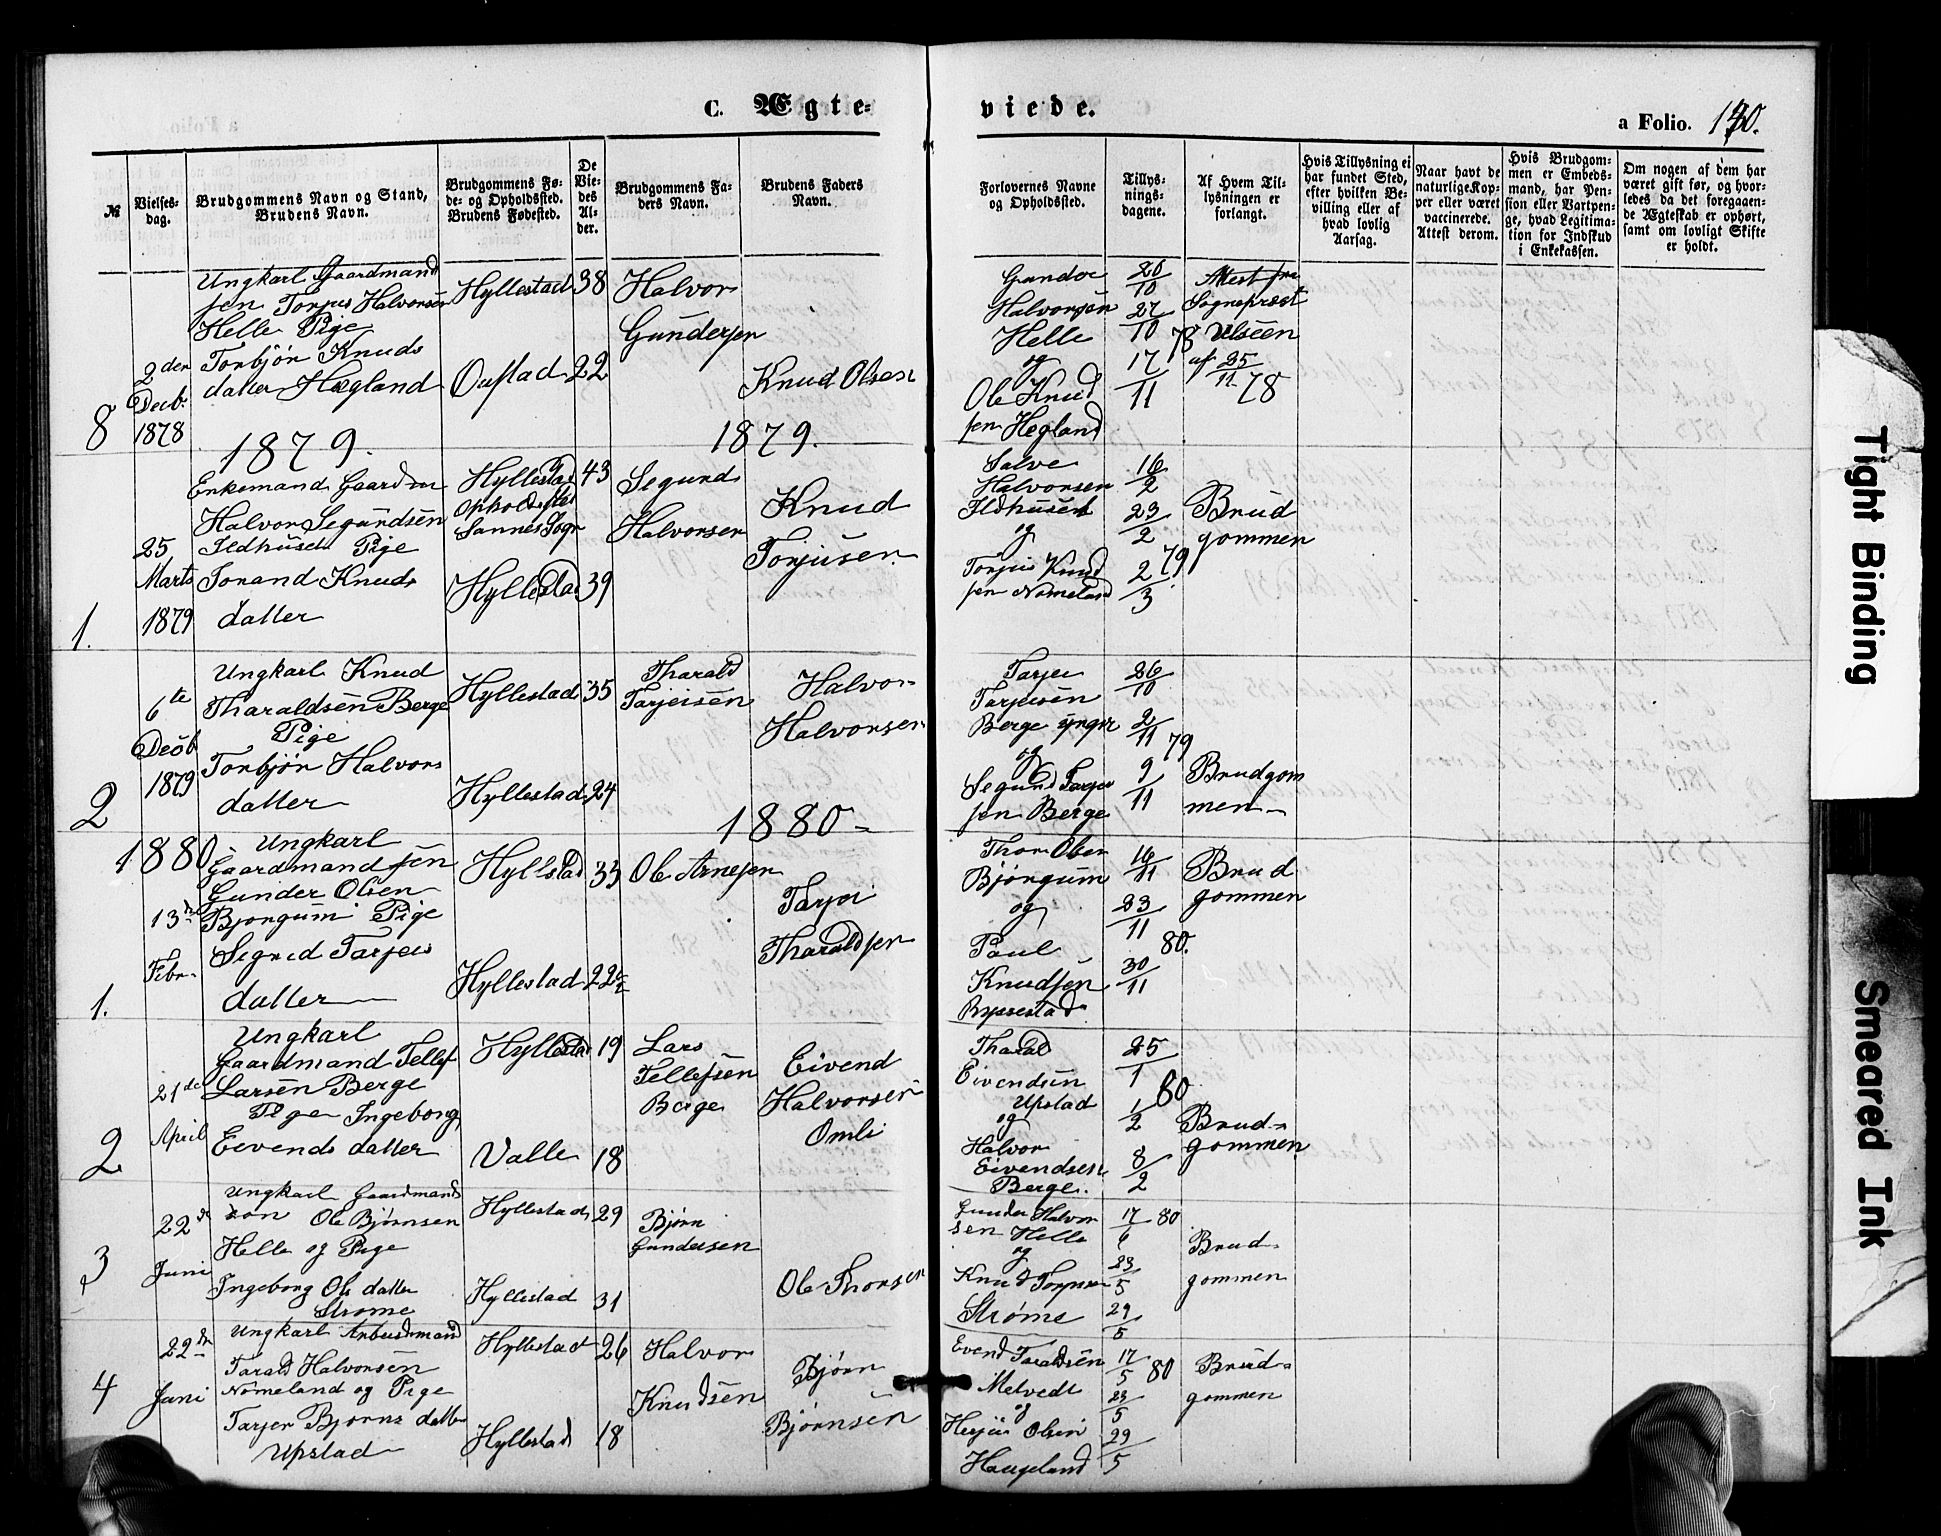 C. Ægte=
viede.
a Folio. 140.
№
Vielses=
dag.
Brudgommens Navn og Stand,
Brudens Navn.
Brudgommens Fø=
de= og Opholdssted.
Brudens Fødested.
De
Vie=
des
Al=
der.
Brudgommens Fa=
ders Navn.
Brudens Faders
Navn.
Forlovernes Navne
og Opholdssted.
Tillys=
nings=
dagene.
Af Hvem Til=
lysningen er
forlangt.
Hvis Tillysning ei
har fundet Sted,
efter hvilken Be=
villing eller af
hvad lovlig
Aarsag.
Naar havt de
naturlige Kop=
per eller været
vaccinerede.
Attest derom.
Hvis Brudgom=
men er Embeds=
mand, har Pen=
sion eller Vartpen=
ge, hvad Legitima=
tion for Indskud
i Enkekassen.
Om nogen af dem har
været gift før, og hvor=
ledes da det foregaaen=
de Ægteskab er ophørt,
samt om lovligt Skifte
er holdt.
8
2den
Decb.
1878
Ungkarl Gaardmand
sen Torjus Halvorsen
Helle Pige
Torbjør Knuds
datter Hægland
Hyllestad 38
22
Halvor
Gundersen
Knud Olsen
Halvorsen
Helle
og
Ole Knud
sen Hegland
20/10
27/10 78
17/11
Attest fra
Sognepræst
af 25/11 78
1879.
1879.
1.
25
Marts
1879
Enkemand Gaardm
Halvor Segundsen
Ildhusen Pige
Torand Knuds
datter
Hyllestad 43
Opholdssted
Sannes Sogn
Hyllestad 39
Segund
Halvorsen
Knud
Torjusen
Salve
Halvorsen
Ildhusen
og
Torjus Knud
sen Nomeland
16/2
23/2 79
2/3
Brud
gommen
2
6te
Decb
1879
Ungkarl Knud
Tharaldsen Berge
Pige
Torbjør Halvors
datter
Hyllestad 35
Hyllestad 24
Tharald
Tarjeisen
Halvor
Halvorsen
Tarjei
Tarjeisen
Berge yngr
og
Segund Tarjei
sen Berge
26/10
2/11 79
9/11
Brudgom
men
1880
1880
1.
13de
Febr.
Ungkarl
Gaardmandsøn
Gunder Olsen
Bjorgum Pige
Sigrid Tarjeis
datter
Hyllestad 33
Hyllestad 22½
Ole Arnesen
Tarjei
Tharaldsen
Thor Olsen
Bjørgum
og
Paul
Knudsen
Ryssestad
16/11
23/11 80.
30/11
Brud
gommen
2
21de
April
Ungkarl
Gaardmand Tellef
Larsen Berge
Pige Ingeborg
Eivends datter
Hyllestad 19
Valle 18
Lars
Tellefsen
Berge
Eivend
Halvorsen
Omli
Tharald
Eivendsen
Upstad
og
Halvor
Eivendsen
Berge.
25/1
1/2 80
8/2
Brud=
gommen
3
22de
Juni
Ungkarl Gaardmands
søn Ole Bjørnsen
Helle og Pige
Ingeborg Ols datter
Strøme
Hyllestad 29
Hyllestad 31
Bjørn
Gundersen
Ole Thorsen
Gunder Halvor
sen Helle
og
Knud
Strøme
17/6 80
23/5
29/5
Brud=
gommen
4
22de
Juni
Ungkarl Arbeidsmand
Tarald Halvorsen
Nomeland og Pige
Tarjer Bjørns datter
Upstad
Hyllestad 26
Hyllestad 18
Halvor
Knudsen
Bjørn
Bjørnsen
Evend Taraldsen
Melvedt
og
Herjus Olsen
Haugeland
17/5 80
23/5
29/5
Brud=
gommen
Tight Binding
Smeared Ink